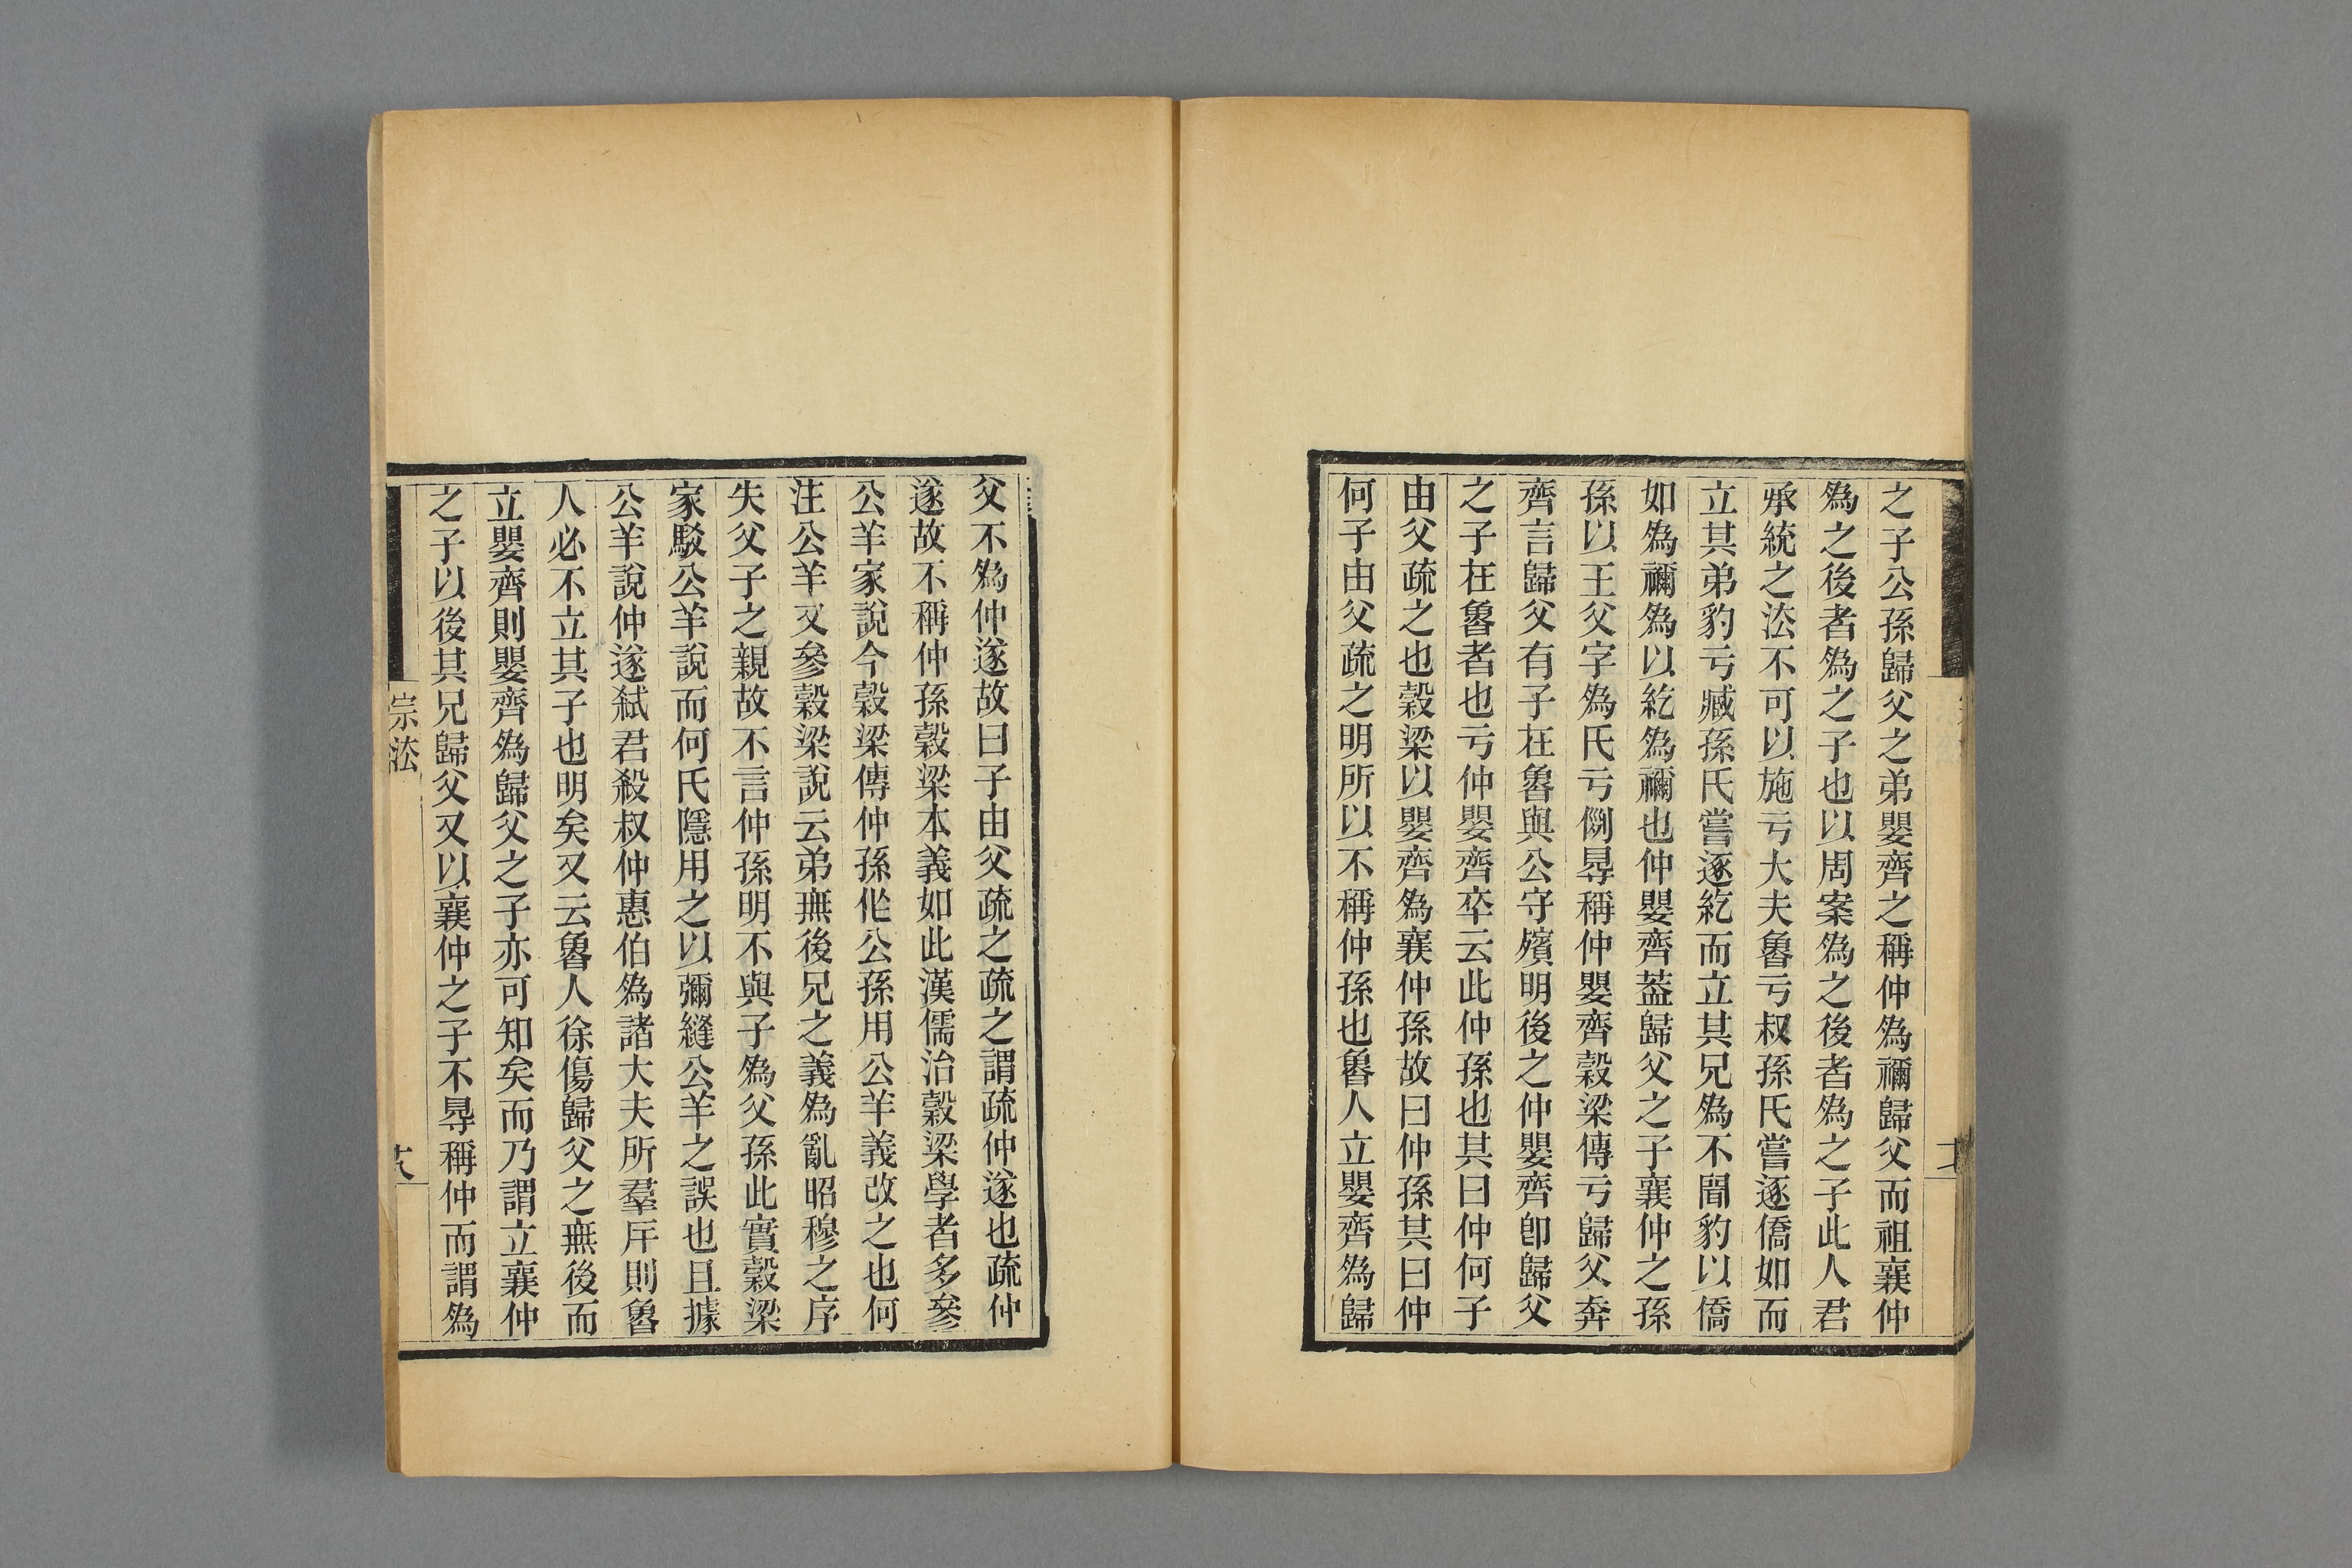 之子公孫歸父之弟嬰齊之稱仲爲禰歸父而祖襄仲
爲之後者爲之子也以周案爲之後者爲之子此人君
承統之法不可以施亏大夫魯亏叔孫氏嘗逐僑如而
立其弟豹亏臧孫氏嘗逐紇而立其兄爲不聞豹以僑
如爲禰爲以紇爲禰也仲嬰齊蓋歸父之子襄仲之孫
孫以王父字爲氏亏例㝵稱仲嬰齊穀梁傳亏歸父奔
齊言歸父有子在魯與公守殯明後之仲嬰齊卽歸父
之子在魯者也亏仲嬰齊卒云此仲孫也其曰仲何子
由父疏之也穀梁以嬰齊爲襄仲孫故曰仲孫其曰仲
何子由父疏之明所以不稱仲孫也魯人立嬰齊爲歸
父不爲仲遂故曰子由父疏之疏之謂疏仲遂也疏仲
遂故不稱仲孫穀梁本義如此漢儒治穀梁學者多參
公羊家說今穀梁傳仲孫作公孫用公羊義改之也何
注公羊又參穀梁說云弟無後兄之義爲亂昭穆之序
失父子之親故不言仲孫明不與子爲父孫此實穀梁
家駁公羊說而何氏隱用之以彌縫公羊之誤也且據
公羊說仲遂弑君殺叔仲惠伯爲諸大夫所羣斥則魯
人必不立其子也明矣又云魯人徐傷歸父之無後而
立嬰齊則嬰齊爲歸父之子亦可知矣而乃謂立襄仲
之子以後其兄歸父又以襄仲之子不㝵稱仲而謂爲
宗法
十八